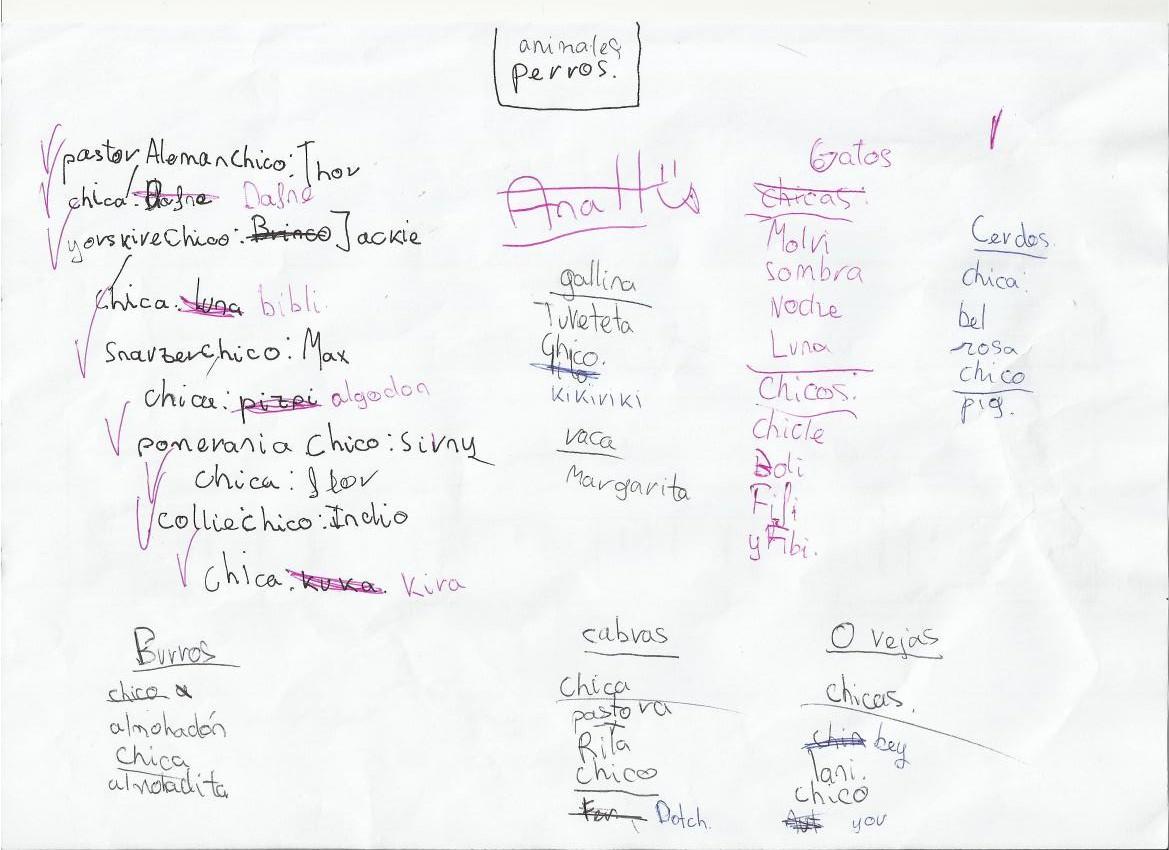 animales
perros.
pastor Aleman Chico: Thor
chica: Dafne Dafne
yorskire Chico: Brinco Jackie
chica: luna bibli.
snavzer chico: Max
chica: pizpi algodon
pomerania Chico: Sivny
chica: flor
collie chico: Indio
chica: kuka. Kira
Anattüs
gallina
Tuteteta
Chico.
kikiriki
vaca
Margarita
Gatos
chicas:
Molvi
sombra
Noche
Luna
Chicos:
chicle
Boli
Fifi
y Fibi.
Cerdos
chica:
bel
rosa
chico
pig.
Burros
chico
almohadón
Chica
almohadita
cabras
Chica
pastora
Rita
chico
Dotch.
Ovejas
chicas.
chin bey
lani.
chico
you